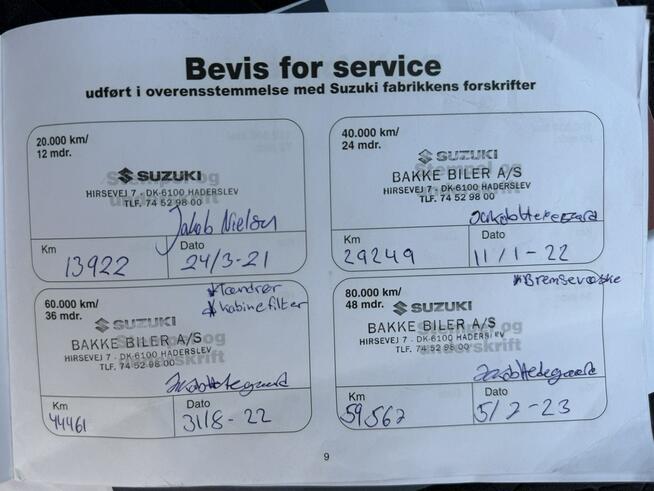 Bevis for service
udført i overensstemmelse med Suzuki fabrikkens forskrifter
20.000 km/
12 mdr.
SUZUKI
Stempel og
HIRSEVEJ 7 - DK-6100 HADERSLEV
TLF. 74 52 98 00
Jakob Nielsen
Km
13922
Dato
24/3-21
40.000 km/
24 mdr.
SUZUKI
Stempel og
BAKKE BILER A/S
HIRSEVEJ 7 - DK-6100 HADERSLEV
TLF. 74 52 98 00
Km
29249
Dato
11/1-22
60.000 km/
36 mdr.
*Tændrør
*Kabinefilter
SUZUKI
BAKKE BILER A/S
HIRSEVEJ 7 - DK-6100 HADERSLEV
TLF. 74 52 98 00
Km
44461
Dato
31/8-22
80.000 km/
48 mdr.
*Bremsevæske
SUZUKI
Stempel og
BAKKE BILER A/S
HIRSEVEJ 7 - DK-6100 HADERSLEV
underskrift
TLF. 74 52 98 00
Km
59.562
Dato
5/2-23
9